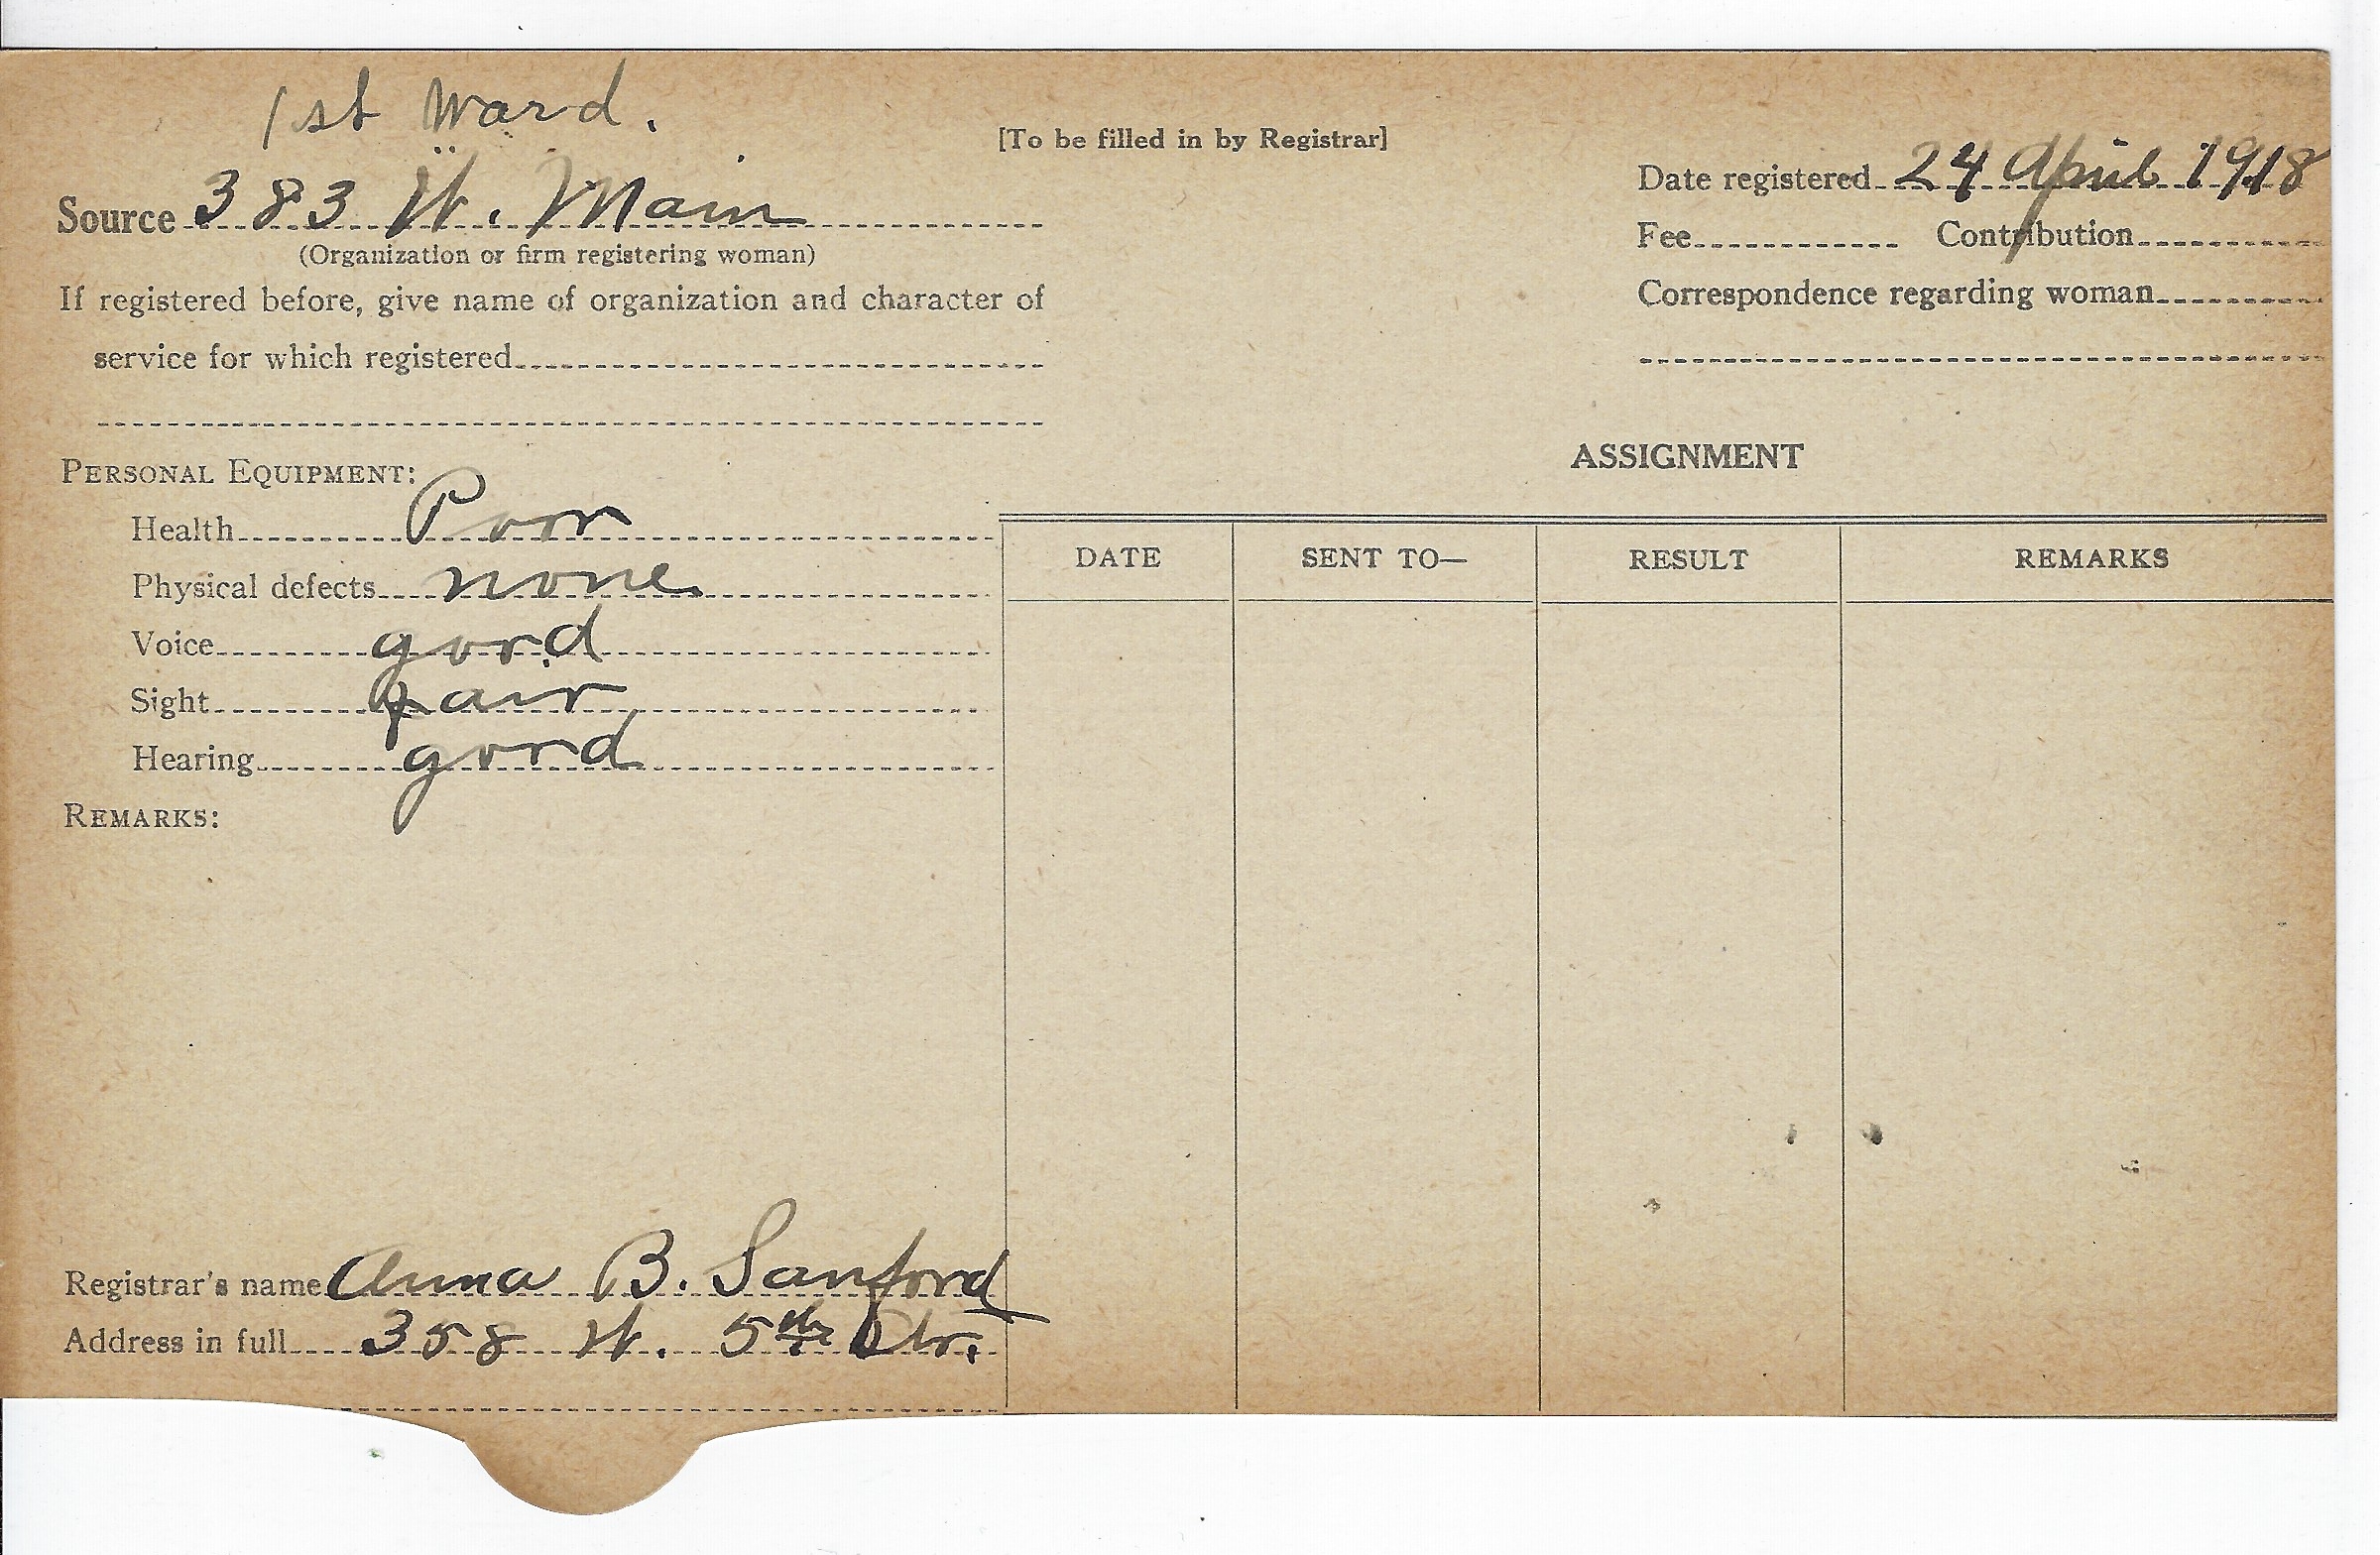 1st Ward.
[To be filled in by Registrar]
Source 383 W. Main
(Organization or firm registering woman)
If registered before, give name of organization and character of
service for which registered
Date registered 24 April 1918
Fee Contribution
Correspondence regarding woman
PERSONAL EQUIPMENT:
Health Poor
Physical defects none
Voice good
Sight fair
Hearing good
REMARKS:
ASSIGNMENT
DATE SENT TO— RESULT REMARKS
Registrar's name Anna B. Sanford
Address in full 358 W. 5th Str.